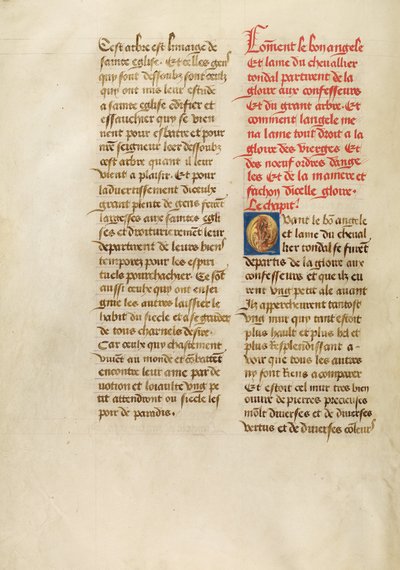 Cest arbre est limaige de
sainte eglise. Et celles gens
qui sont dessoubz sont ceulx
qui ont mis leur estude
a sainte eglise edifier et
essaucher qui se vien
nent pour esbatre et pour
mer seigneur leer dessoubz
cest arbre quant il leur
vient a plaisir. Et pour
laduertissement diceulx
grant plente de gens feirent
largesses aux saintes egli
ses et droiturierement leur
departent de leurs biens
temporez pour les espiri
tuels pourchachier. Ce sont
aussi ceulx qui ont ensei
gnie les autres laissier le
habit du siecle et a se garder
de tous charnels desirs.
Car ceulx qui chastement
viuent au monde et combatent
encontre leur ame par de
uotion et loiaulte vng pe
tit attendront ou siecle les
poir de paradis.
Coment le bon angele
Et lame du cheuallier
tondal partirent de la
gloire aux confesseurs
Et du grant arbre. Et
comment langele me
na lame tout droit a la
gloire des vierges Et
des noeuf ordres dange
les Et de la maniere et
fachon dicelle gloire.
Le chapitre
Quant le bon angele
et lame du cheual
lier tondal se furent
departis de la gloire aux
confesseurs et que ilz eu
rent vng petit ale auant
Ilz apperchurent tantost
vng mur qui tant estoit
plus hault et plus bel et
plus Resplendissant a
voir que tous les autres
ny font Riens a comparer
Et estoit cel mur tres bien
ouure de pierres precieuses
moult diuerses et de diuerses
vertus et de diuerses couleurs